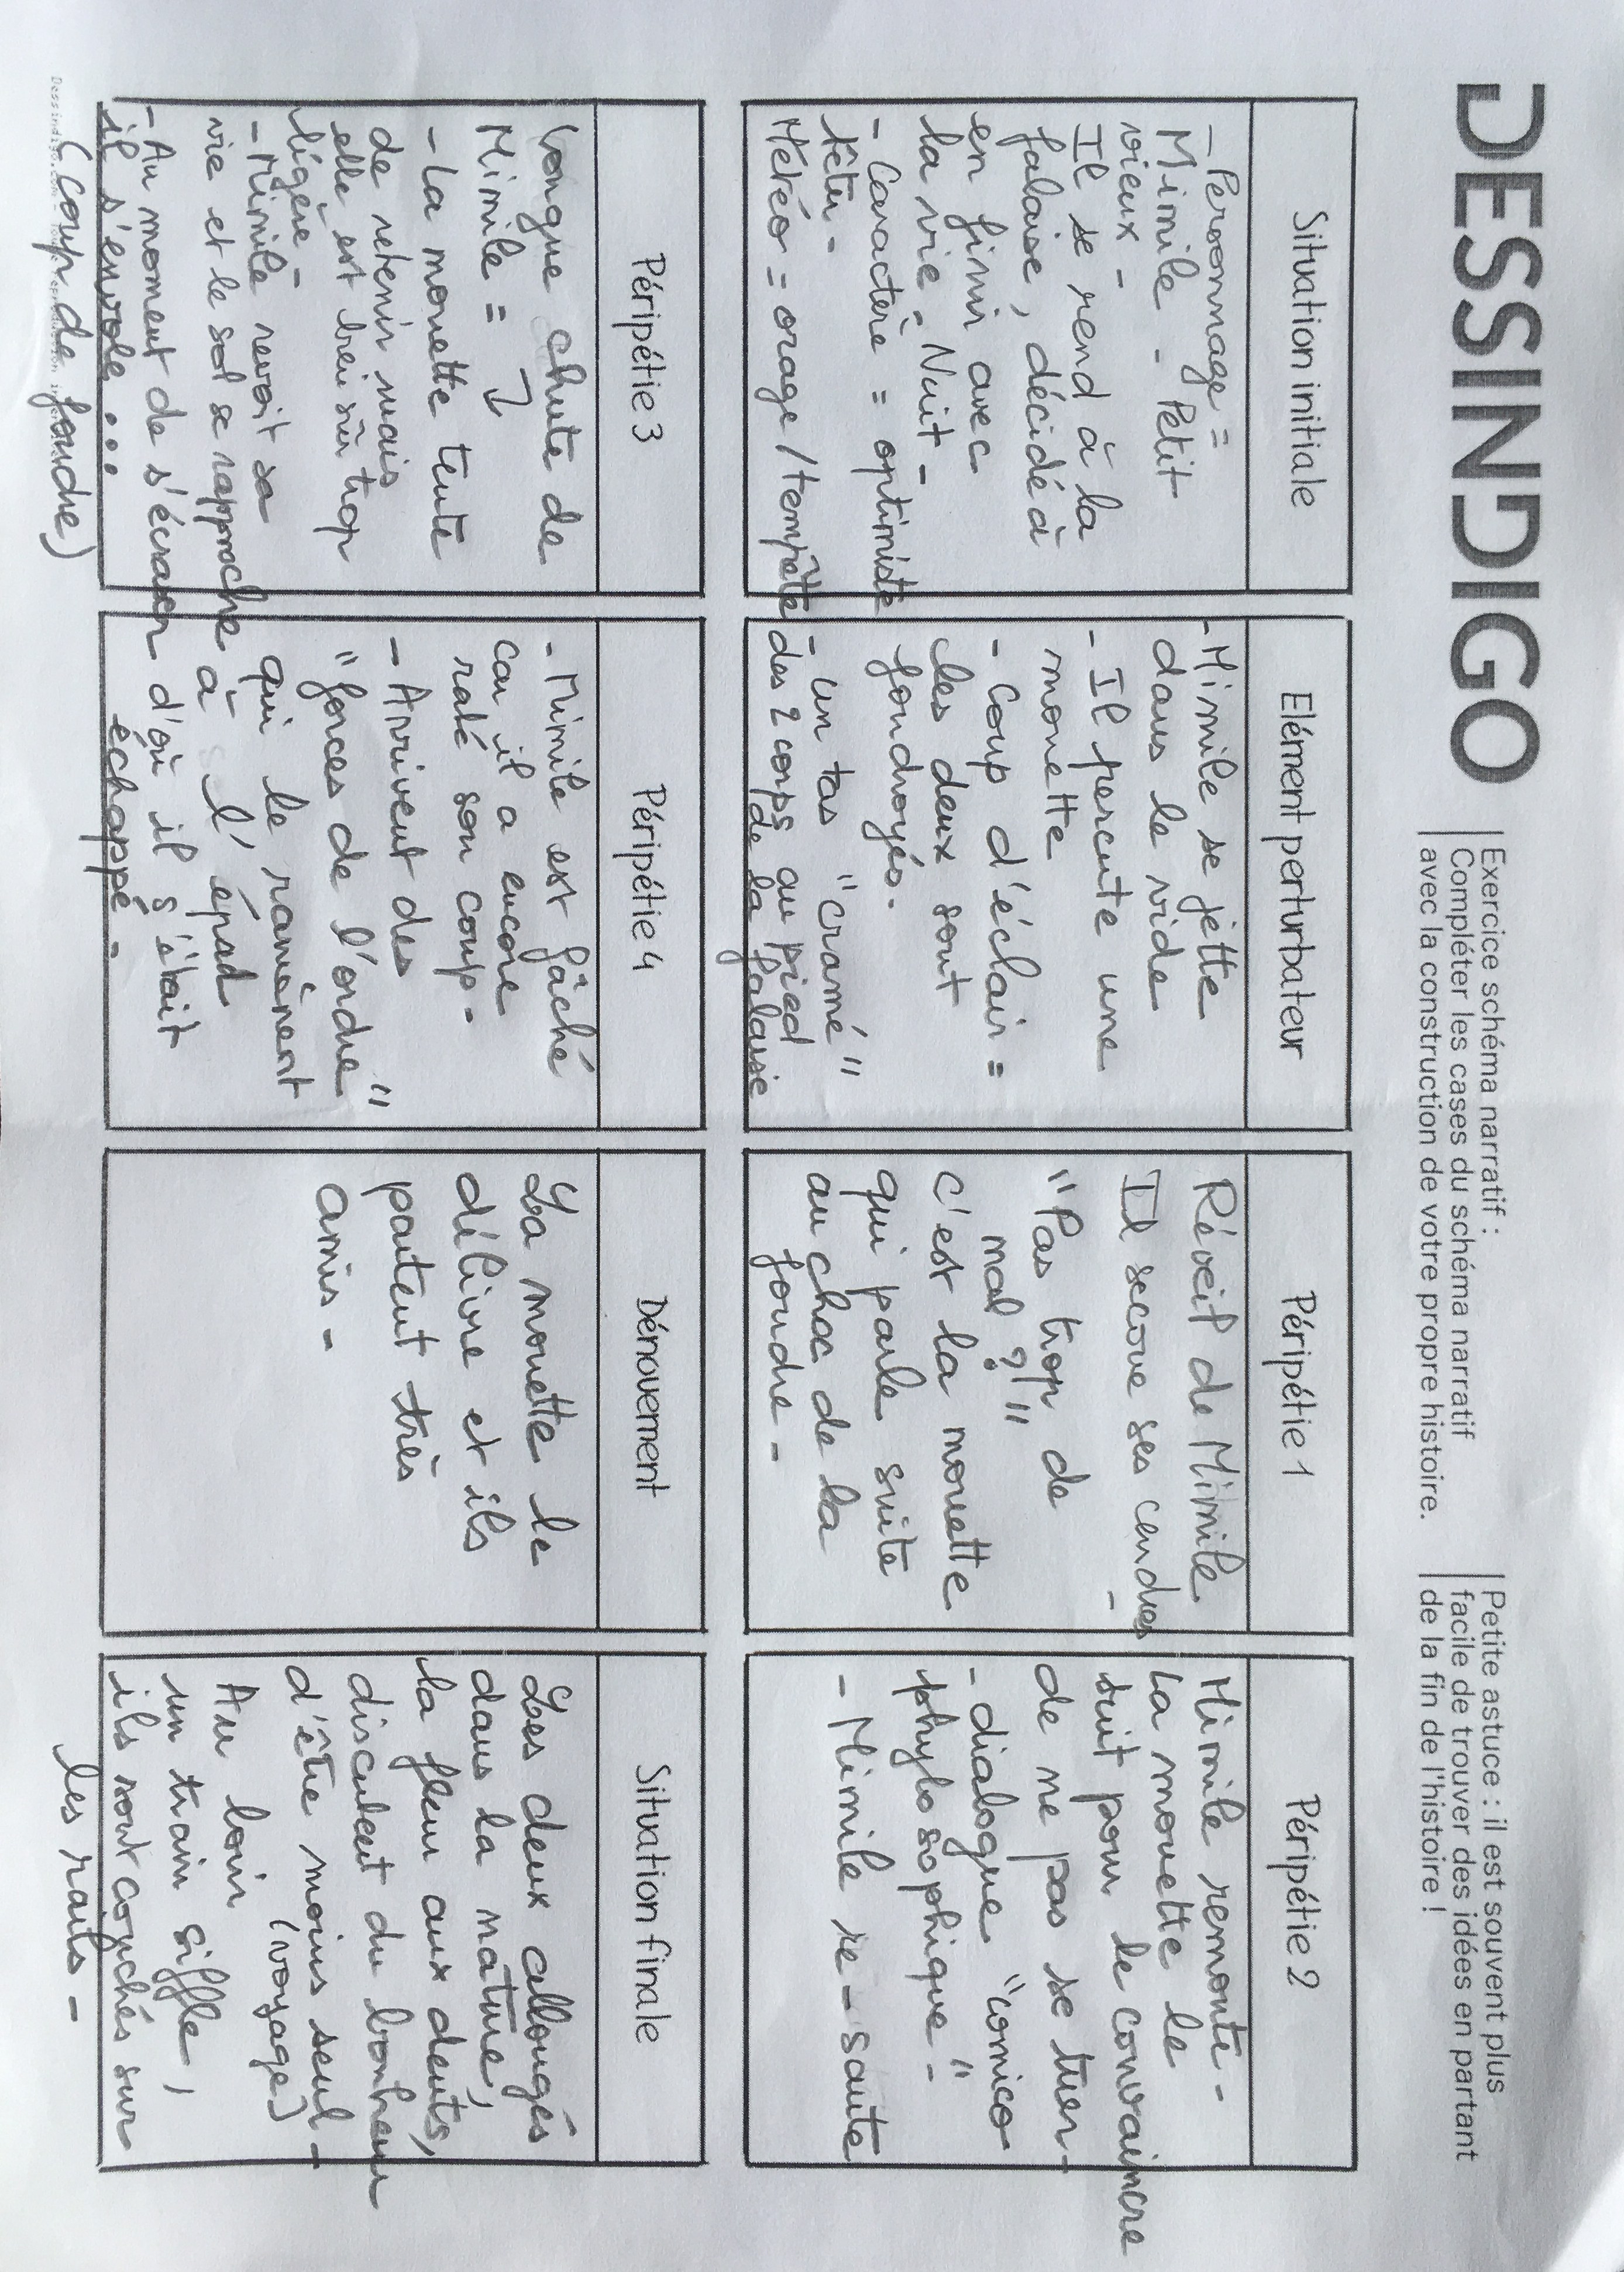 DESSINDIGO
Exercice schéma narratif :
Compléter les cases du schéma narratif
avec la construction de votre propre histoire.
Petite astuce : il est souvent plus
facile de trouver des idées en partant
de la fin de l'histoire !
Situation initiale
- Personnage =
Mimile - Petit
vieux -
Il se rend à la
falaise, décidé à
en finir avec
la vie - Nuit -
- Caractère = optimiste
têtu -
Météo = orage / tempête
Elément perturbateur
- Mimile se jette
dans le vide
- Il percute une
mouette
- Coup d'éclair =
les deux sont
foudroyés.
- un tas "cramé"
des 2 corps au pied
de la falaise
Péripétie 1
Réveil de Mimile
Il secoue ses cendres -
"Pas trop de
mal ?"
c'est la mouette
qui parle suite
au choc de la
foudre -
Péripétie 2
Mimile remonte -
La mouette le
suit pour le convaincre
de ne pas se tuer -
- dialogue "comico
phylosophique" -
- Mimile re-saute
Péripétie 3
Longue chute de
Mimile = ↴
- La mouette tente
de retenir mais
elle est bien sûr trop
légère -
- Mimile revoit sa
vie et le sol se rapproche
- Au moment de s'écraser
il s'envole...
(coup de foudre)
Péripétie 4
- Mimile est fâché
car il a encore
raté son coup -
- Arrivent des
"forces de l'ordre"
qui le ramènent
à l'épad
d'où il s'était
échappé -
Dénouement
La mouette le
délivre et ils
partent très
amis -
Situation finale
Les deux allongés
dans la nature,
la fleur aux dents,
discutent du bonheur
d'être moins seul -
(voyage)
Au loin
un train siffle,
ils sont couchés sur
les rails -